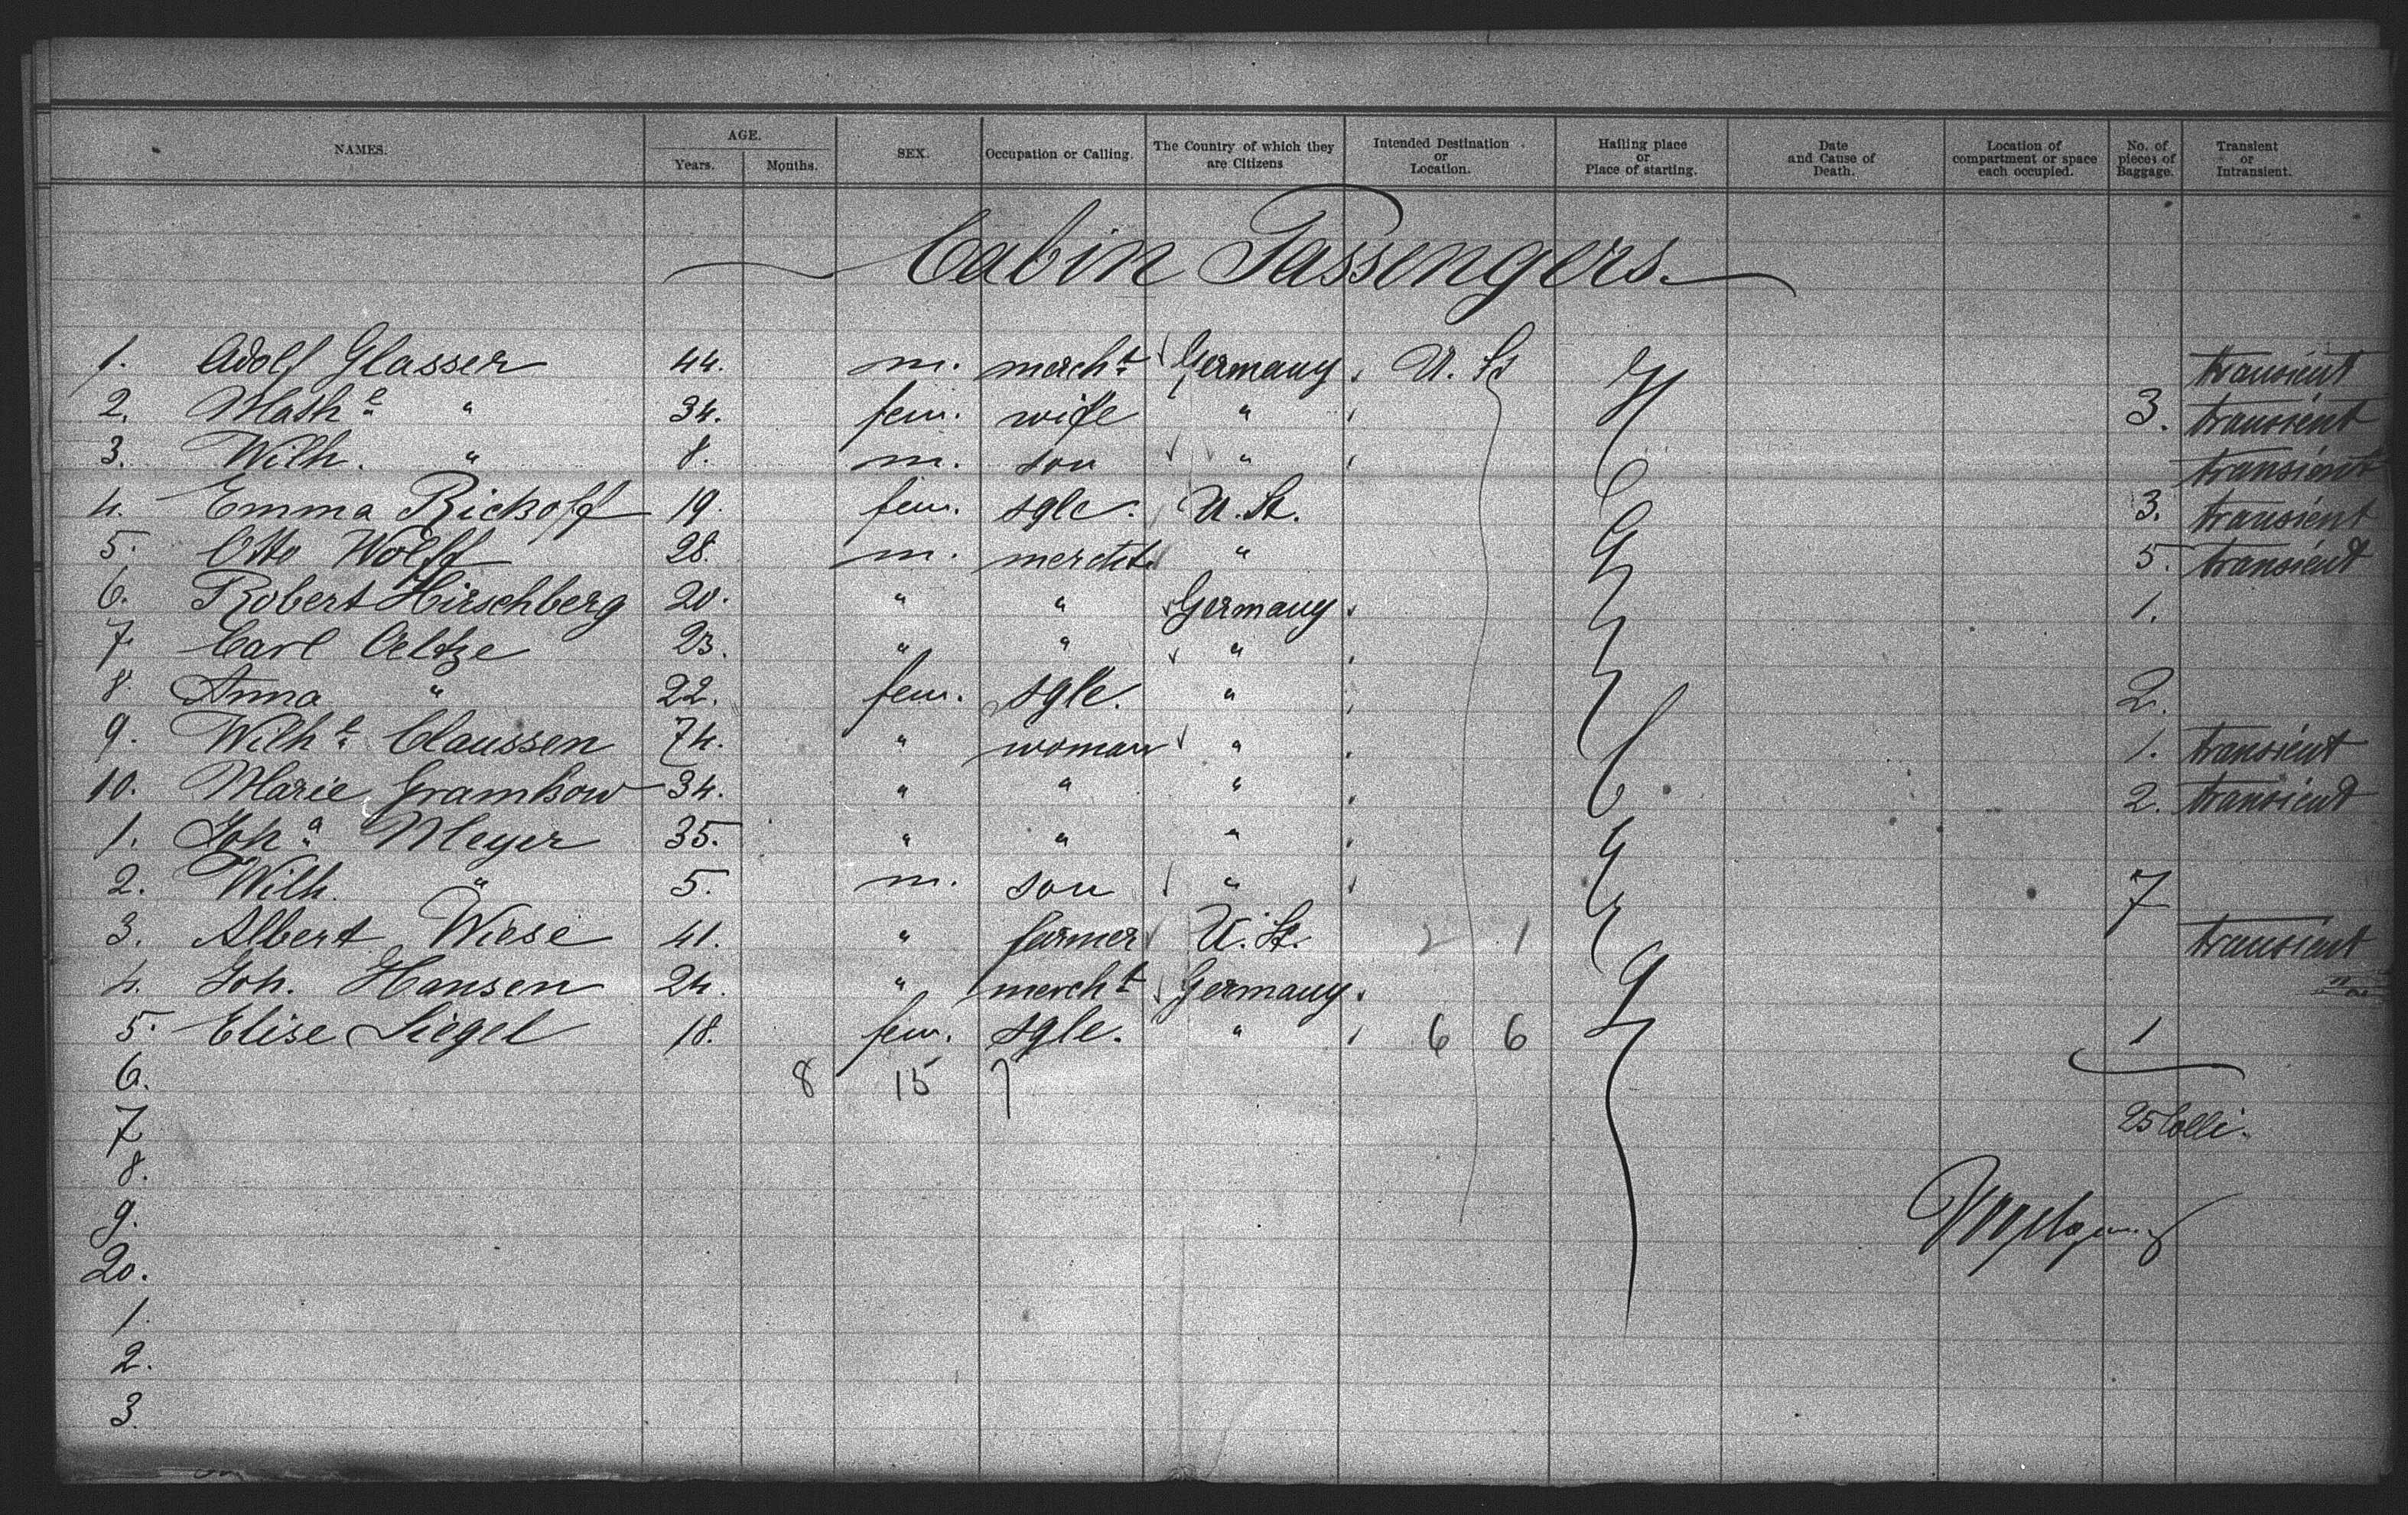 NAMES. AGE. Years. Months. SEX. Occupation or Calling. The Country of which they are Citizens Intended Destination or Location. Hailing place or Place of starting. Date and Cause of Death. Location of compartment or space each occupied. No. of pieces of Baggage. Transient or Intransient.
Cabin Passengers.
1. Adolf Glasser 44. m. mercht Germany U. St transient
2. Mathe " 34. fem. wife " 3. transient
3. Wilh. " 8. m. son " transient
4. Emma Rickoff 19. fem. sgle. U. St. 3. transient
5. Otto Wolff 28. m. mercht. " 5. transient
6. Robert Hirschberg 20. " " Germany 1.
7. Carl Oeltze 23. " " "
8. Anna " 22. fem. sgle. " 2.
9. Wilhe Claussen 74. " woman " 1. transient
10. Marie Gramkow 34. " " " 2. transient
1. Joha Meyer 35. " " "
2. Wilh. " 5. m. son " 7
3. Albert Wiese 41. " farmer U. St. 2 1 transient
4. Joh. Hansen 24. " mercht Germany. "
5. Elise Siegel 18. fem. sgle. " 6 6 1
6. 8 15 7
7. 25 Colli.
8.
9.
20.
1.
2.
3.